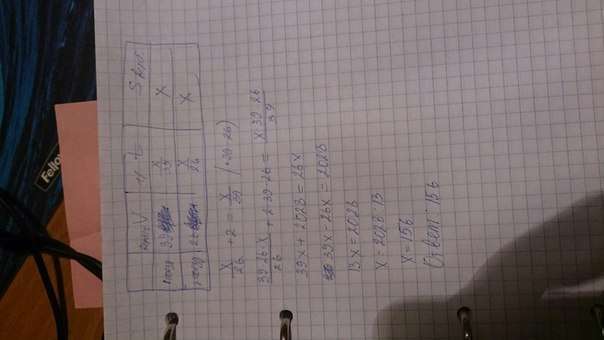 км/ч V t ч S км
1 поезд 39 x/39 x
2 поезд 26 x/26 x
x/26 + 2 = x/39 | (·39·26)
39·26·x/26 + 2·39·26 = x·39·26/39
39x + 2028 = 26x
39x - 26x = 2028
13x = 2028
x = 2028:13
x = 156
Ответ: 156
Fello